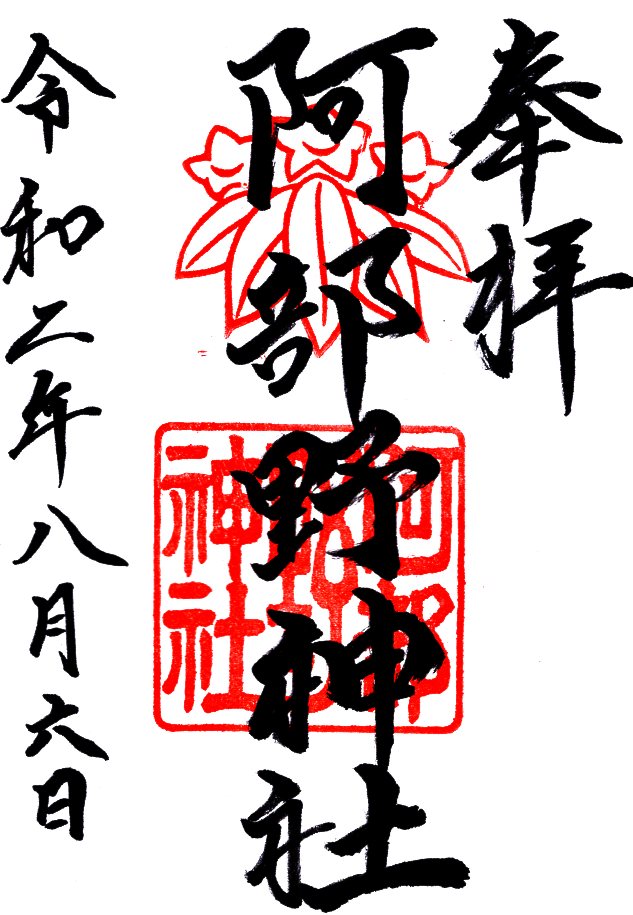 奉拝
阿部野神社
阿部野神社
令和二年八月六日